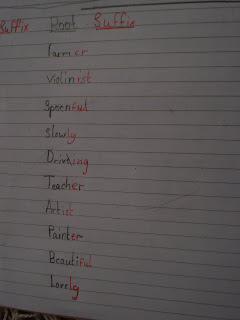 Suffix Root Suffix
Farmer
Violinist
Spoonful
Slowly
Drinking
Teacher
Artist
Painter
Beautiful
Lovely